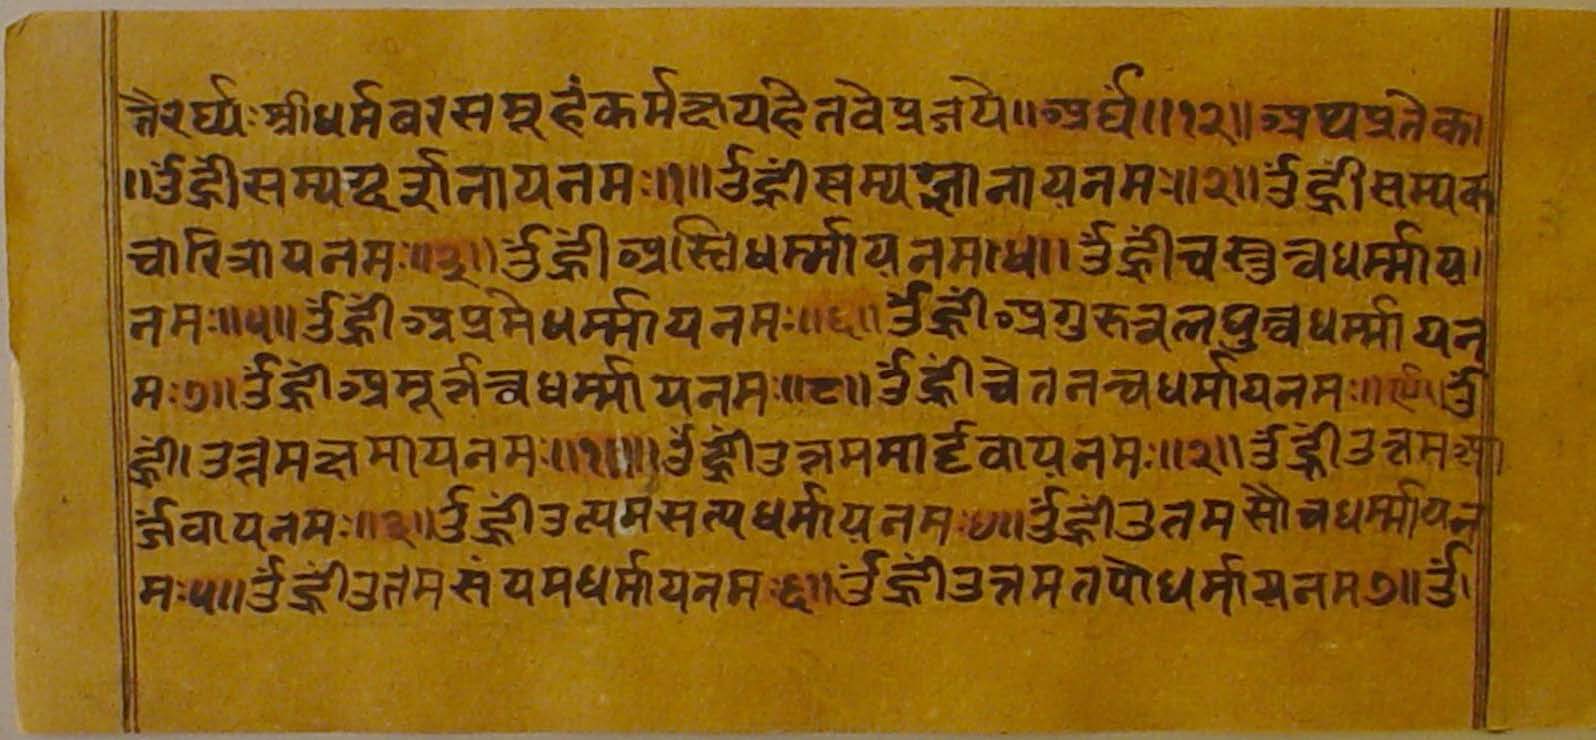 नैरर्घ्यः श्रीधर्मवरसमूहं कर्मक्षयहेतवे प्रजये॥ अर्घं॥१२॥ अथ प्रतेक।
॥ उँ ह्रीं सम्यग्दर्शनाय नमः॥१॥ उँ ह्रीं सम्यग्ज्ञानाय नमः॥२॥ उँ ह्रीं सम्यक
चारित्राय नमः॥३॥ उँ ह्रीं अस्तिधर्म्माय नम॥४॥ उँ ह्रीं वस्तुत्वधर्म्माय।
नमः॥५॥ उँ ह्रीं अप्रमेधर्म्माय नमः॥६॥ उँ ह्रीं अगुरुत्वलघुत्वधर्म्माय न
मः७॥ उँ ह्रीं अमूर्त्तत्वधर्म्माय नमः॥८॥ उँ ह्रीं चेतनत्वधर्माय नमः॥९॥ उँ
ह्रीं। उत्तमक्षमाय नमः॥१॥ उँ ह्रीं उत्तममार्द्दवाय नमः॥२॥ उँ ह्रीं उत्तमआ
र्ज्जवाय नमः॥३॥ उँ ह्रीं उत्यमसत्यधर्माय नमः४॥ उँ ह्रीं उतमसौचधर्म्माय न
मः५॥ उँ ह्रीं उतमसंयमधर्माय नमः६॥ उँ ह्रीं उत्तमतपोधर्माय नम७॥ उँ।